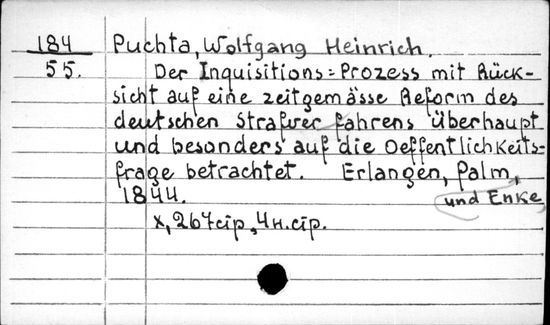 184 Puchta, Wolfgang Heinrich.
55. Der Inquisitions=Prozess mit Rück-
sicht auf eine zeitgemässe Reform des
deutschen Strafverfahrens überhaupt
und besonders auf die Oeffentlichkeits-
frage betrachtet. Erlangen, Palm,
1844. und Enke,
X, 264 стр, 4 н. стр.